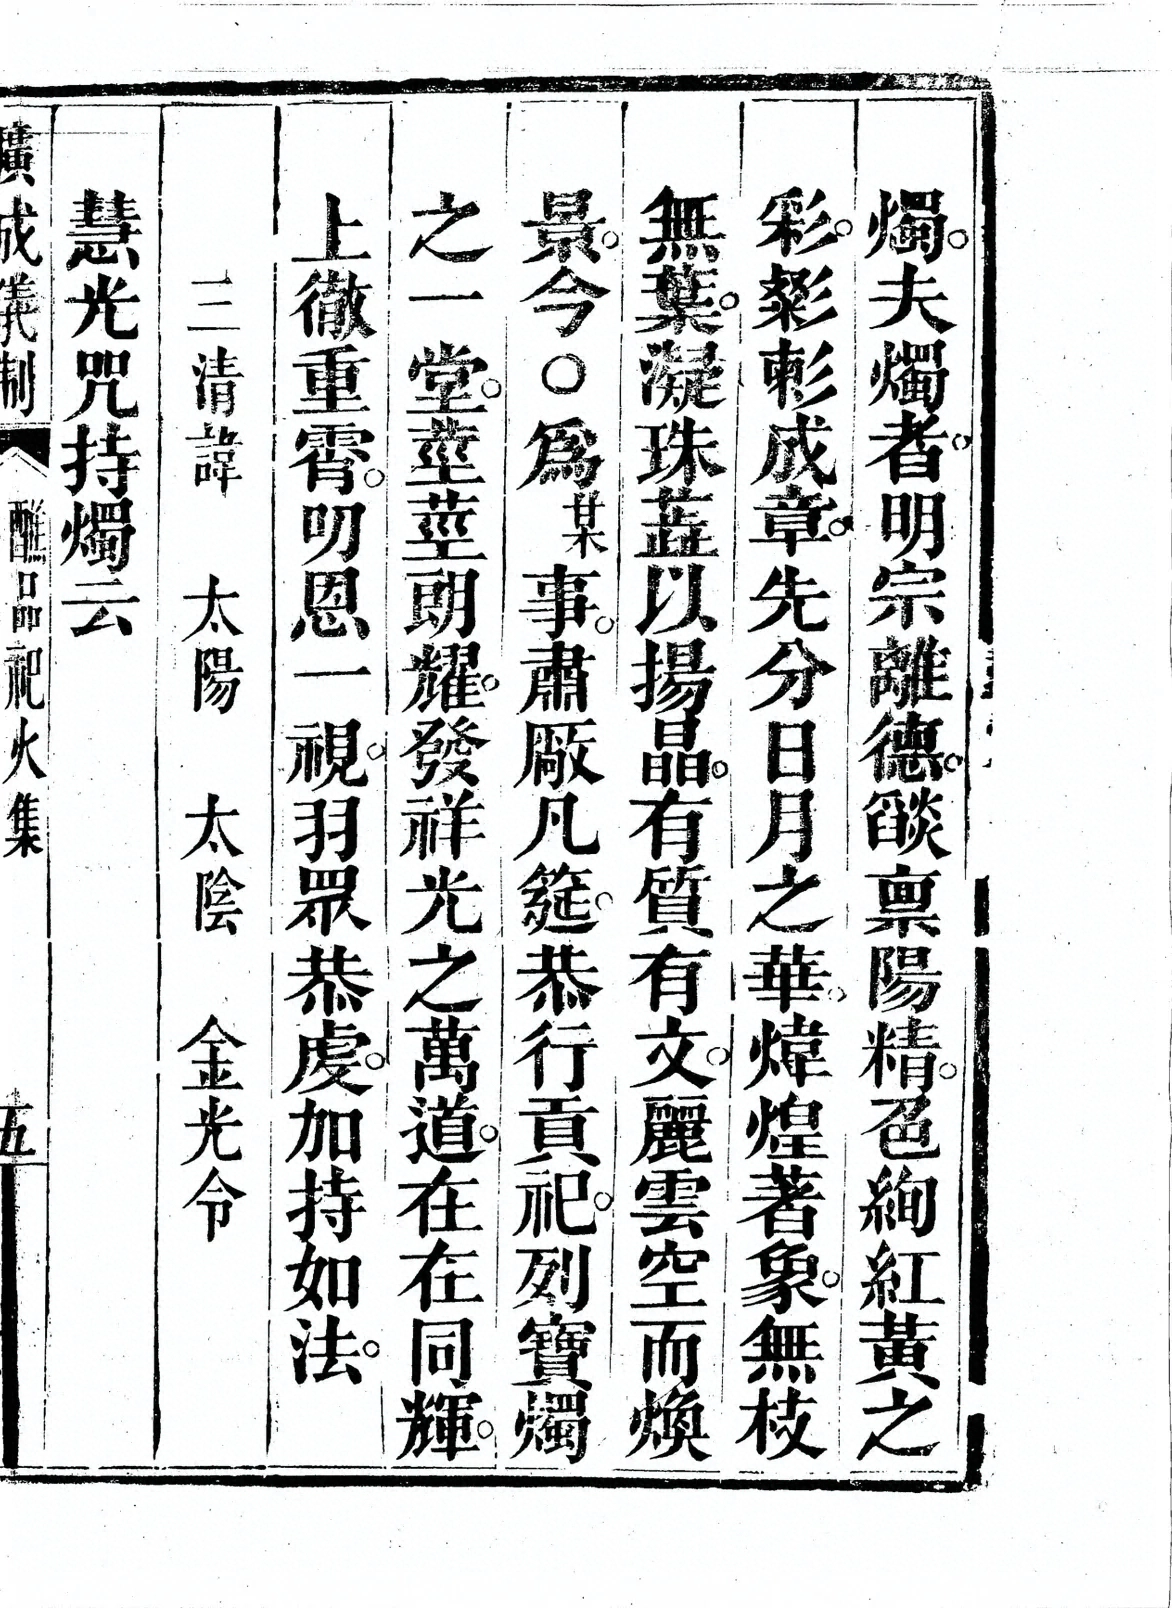 燭。夫燭者。明宗離德。燄禀陽精。色絢紅黃之
彩。粲彰成章。先分日月之華。煒煌著象。無枝
無葉。凝珠蕋以揚晶。有質有文。麗雲空而煥
景。今○爲某事。肅厰凡筵。恭行貢祀。列寶燭
之一堂。莖莖朗耀。發祥光之萬道。在在同輝。
上徹重霄。叨恩一視。羽眾恭虔。加持如法。
三清諱 太陽 太陰 金光令
慧光咒持燭云
廣成儀制 醮品祀火集 五